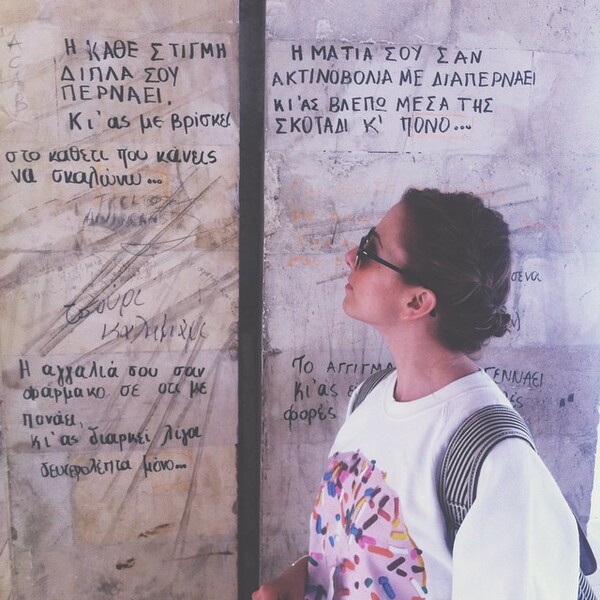 ACAB
Η ΚΑΘΕ ΣΤΙΓΜΗ
ΔΙΠΛΑ ΣΟΥ
ΠΕΡΝΑΕΙ.
Κι'ας με βρίσκει
στο καθετι που κάνεις
να σκαλώνω...
Η αγγαλιά σου σαν
φάρμακο σε οτι με
πονάει,
κι'ας διαρκεί λίγα
δευτερολεπτα μόνο...
Η ΜΑΤΙΑ ΣΟΥ ΣΑΝ
ΑΚΤΙΝΟΒΟΛΙΑ ΜΕ ΔΙΑΠΕΡΝΑΕΙ
ΚΙ'ΑΣ ΒΛΕΠΩ ΜΕΣΑ ΤΗΣ
ΣΚΟΤΑΔΙ Κ' ΠΟΝΟ...
ΤΟ ΑΓΓΙΓΜΑ ΓΕΝΝΑΕΙ
Κι'ας
φορές